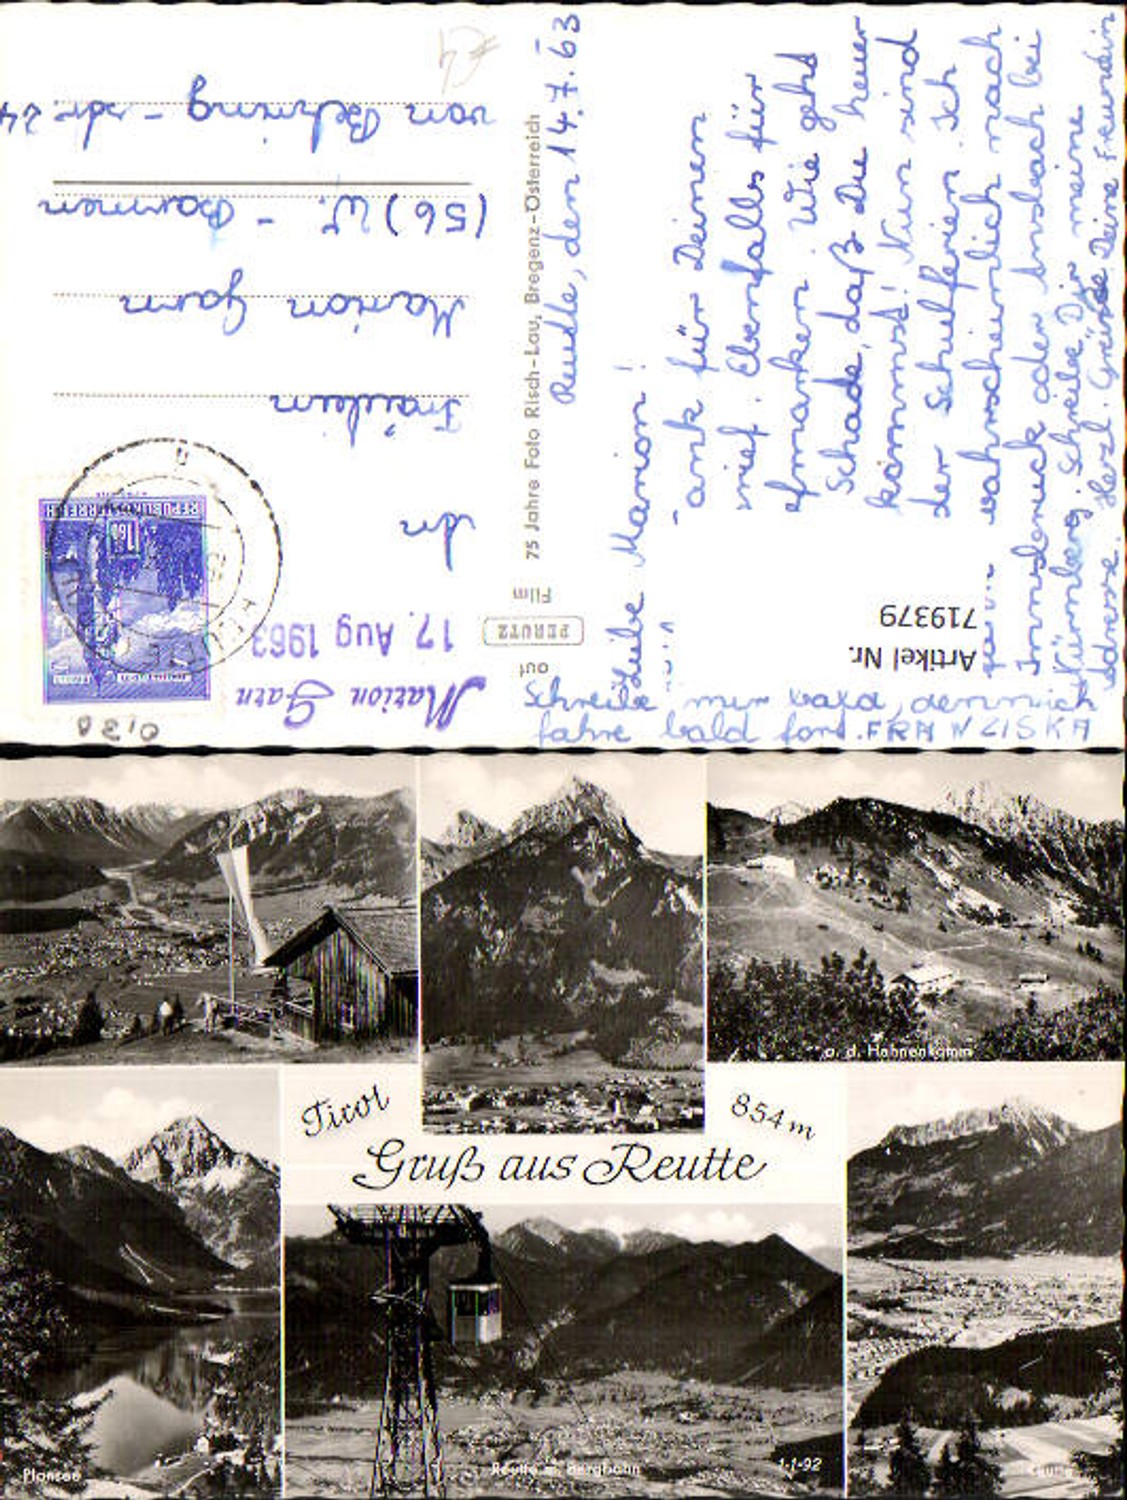 Reutte, den 14.7.63
Liebe Marion!
ank für Deinen
rief. Ebenfalls für
Wie gehd
Schade, daß Du heuer
kommsd! Nun sind
der Schulferien. Ich
wahrscheinlich nach
Innsbruck oder Ansbach bei
Nürnberg. Schreibe Dir meine
Adresse. Herzl. Grüsse Deine Freundin
FRANZISKA
Schreibe mir bald, denn ich
fahre bald fort.
Artikel Nr.
719379
75 Jahre Foto Risch-Lau, Bregenz-Österreich
auf
PERUTZ
Film
REPUBLIK ÖSTERREICH
Marion Garn
17. Aug 1963
An
Fräulein
Marion Garn
(56) W. - Barmen
von Behring - str. 24
Tirol
854 m
Gruß aus Reutte
a. d. Hahnenkamm
Plansee
Reutte m. Bergbahn
1-1-92